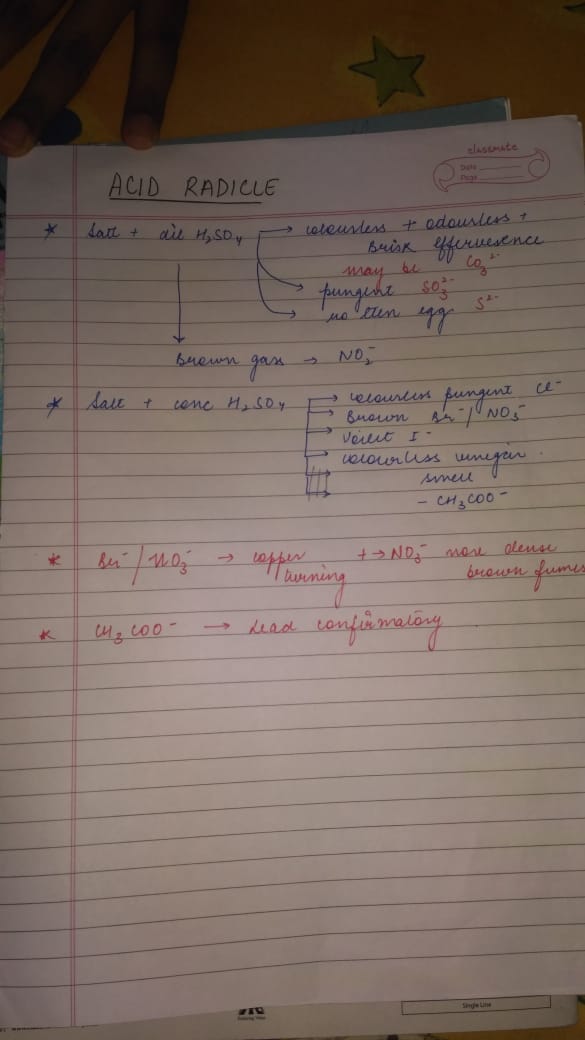 classmate
Date
Page
ACID RADICLE
* Salt + dil H₂SO₄ → colourless + odourless +
Brisk effervesence
may be CO₃²⁻
pungent SO₃²⁻
rotten egg S²⁻
Brown gas → NO₂⁻
* Salt + conc H₂SO₄ → colourless pungent Cl⁻
Brown Br⁻/ NO₃⁻
Voilet I⁻
colourless vinegar
smell
– CH₃COO⁻
* Br⁻/NO₃⁻ → copper turning + → NO₃⁻ more dense
brown fumes
* CH₃COO⁻ → Lead confirmatory
Single Line